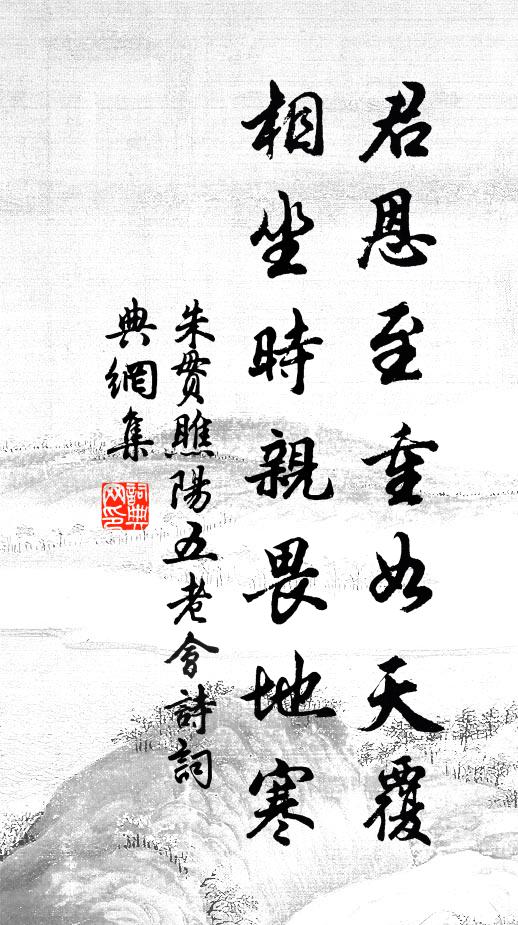 君恩至重如天覆
相坐時親畏地寒
朱貫瞧陽五老會詩詞
典網集
詞典
网印